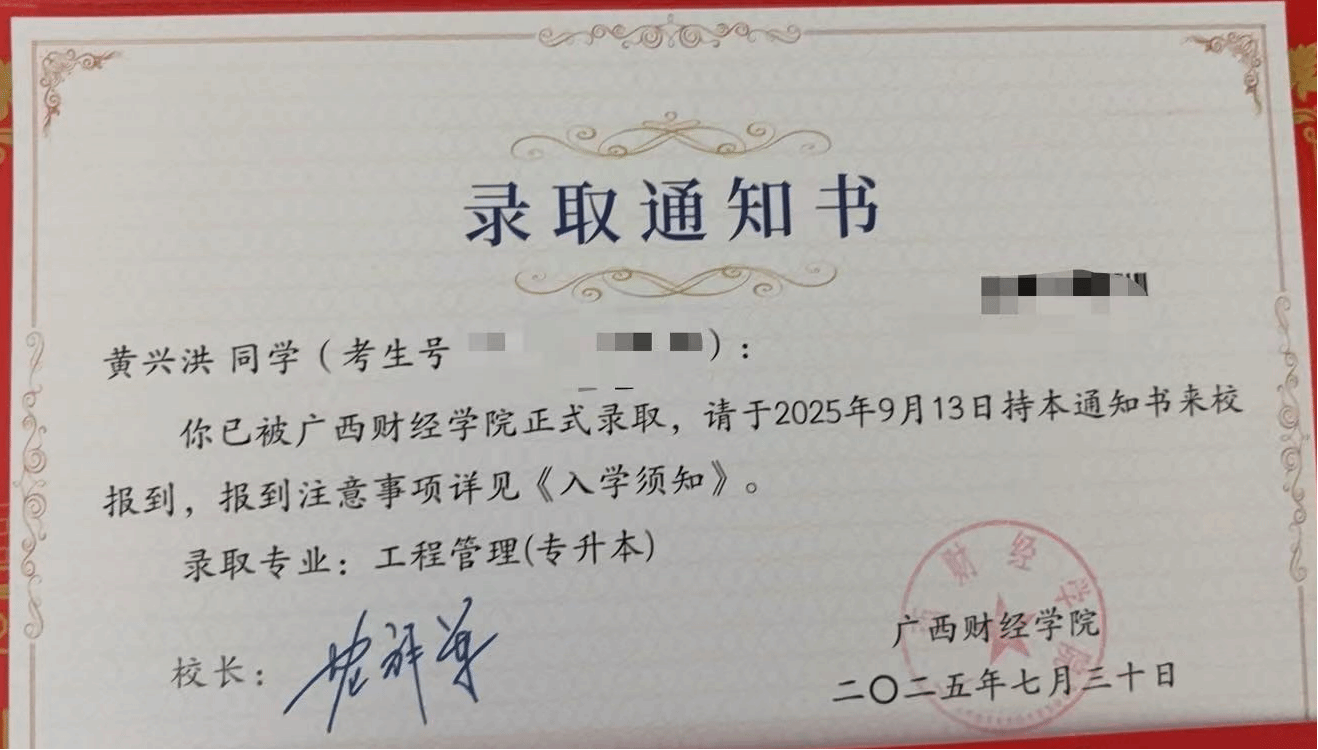 录取通知书
黄兴洪 同学（考生号 ）：
你已被广西财经学院正式录取，请于2025年9月13日持本通知书来校
报到，报到注意事项详见《入学须知》。
录取专业：工程管理(专升本)
校长：
广西财经学院
二〇二五年七月三十日
财经学院